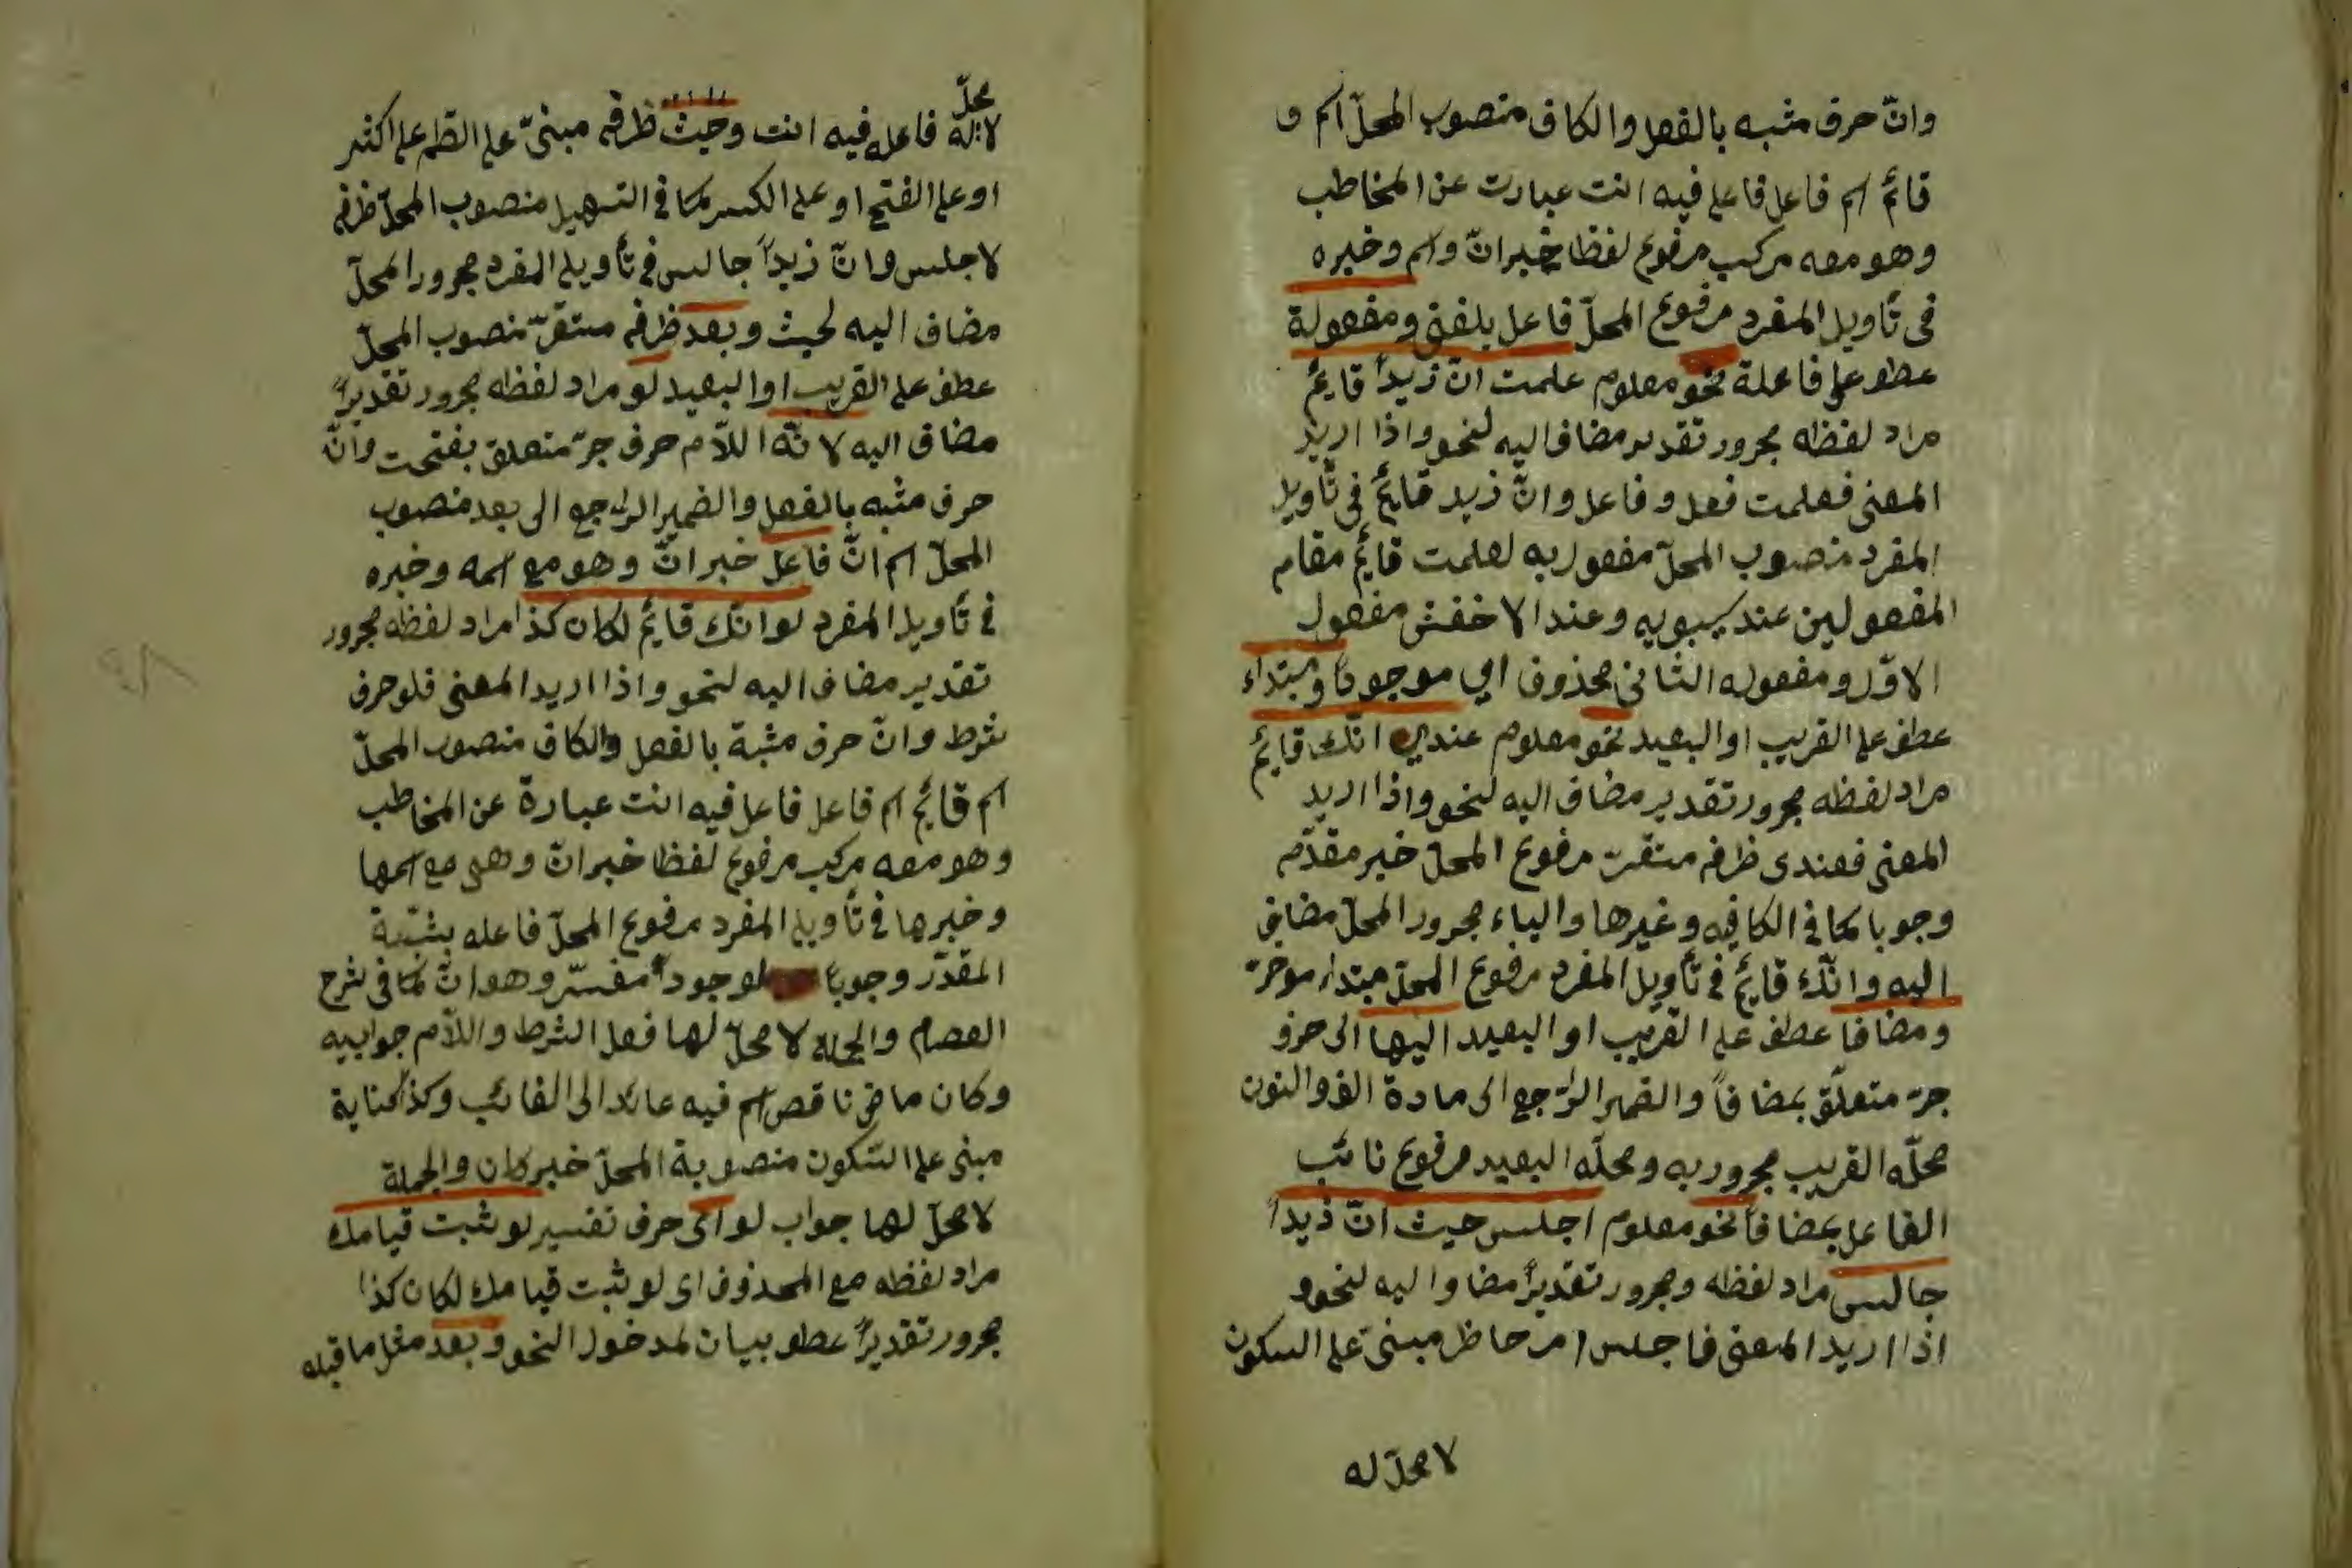 وانّ حرف مشبه بالفعل والكاف منصوب المحلّ اسم و
قائم اسم فاعل فاعل فيه انت عبارت عن المخاطب
وهو معه مركب مرفوع لفظا خبر انّ واسم وخبره
فى تأويل المفرد مرفوع المحلّ فاعل يلفنى ومفعولة
عطف على فاعلة نحو معلوم علمت انّ زيداً قايمٌ
مراد لفظه مجرور تقدير مضاف اليه لنحو واذا اريد
المعنى فعلمت فعل و فاعل وانّ زيد قايمٌ فى تأويل
المفرد منصوب المحلّ مفعول به لعلمت قايم مقام
المفعولين عند سيبويه وعند الاخفش مفعول
الاوّل ومفعوله الثانى محذوف اى موجودا ومبتداء
عطف على القريب او البعيد نحو معلوم عندى انّك قايم
مراد لفظه مجرور تقدير مضاف اليه لنحو واذا اريد
المعنى فعندى ظرف مستقرّ مرفوع المحلّ خبر مقدّم
وجوبا كما فى الكافيه وغيرها والياء مجرور المحلّ مضاف
اليه وانّك قايم فى تأويل المفرد مرفوع المحلّ مبتداء موخرّ
ومضافا عطف على القريب او البعيد اليها الى حرف
جرّ متعلّق بمضافاً والضمير الرّاجع الى مادة الف والنون
محلّه القريب مجرور به ومحلّه البعيد مرفوع نائب
الفاعل بمضافاً نحو معلوم اجلس حيث انّ زيداً
جالس مراد لفظه ومجرور تقديراً مضاف اليه لنحو و
اذا اريد المعنى فاجلس امر حاظر مبنىّ على السكون
لا محلّ له
محلّ
لا له فاعله فيه انت وحيث ظرف مبنىّ على الضم على اكثر
او على الفتح او على الكسر كما فى التسهيل منصوب المحلّ ظرف
لاجلس وانّ زيداً جالس فى تأويل المفرد مجرور المحلّ
مضاف اليه لحيث وبعد ظرف مستقرّ منصوب المحلّ
عطف على القريب او البعيد لو مراد لفظه مجرور تقديراً
مضاف اليه لانّه اللاّم حرف جرّ متعلق بفتحت وانّ
حرف مشبه بالفعل والضمير الرّاجع الى بعد منصوب
المحلّ اسم انّ فاعل خبر انّ وهو مع اسمه وخبره
فى تأويل المفرد لو انّك قايم لكان كذا مراد لفظه مجرور
تقدير مضاف اليه لنحو واذا اريد المعنى فلو حرف
شرط وانّ حرف مشبة بالفعل والكاف منصوب المحلّ
اسم قايم اسم فاعل فاعل فيه انت عبارة عن المخاطب
وهو معه مركب مرفوع لفظا خبر انّ وهى مع اسمها
وخبرها فى تأويل المفرد مرفوع المحلّ فاعله
المقدّر وجوبا لوجود مفسّر وهو انّ كما فى شرح
العصام والجملة لا محلّ لها فعل الشرط واللاّم جوابيه
وكان ماض ناقص اسم فيه عائد الى الغائب وكذا كناية
مبنى على السّكون منصوبة المحلّ خبر كان والجملة
لا محلّ لها جواب لو اى حرف تفسير لو ثبت قيامك
مراد لفظه مع المحذوف اى لو ثبت قيامك لكان كذا
مجرور تقديراً عطف بيان لمدخول النحو وبعد مثل ما قبله